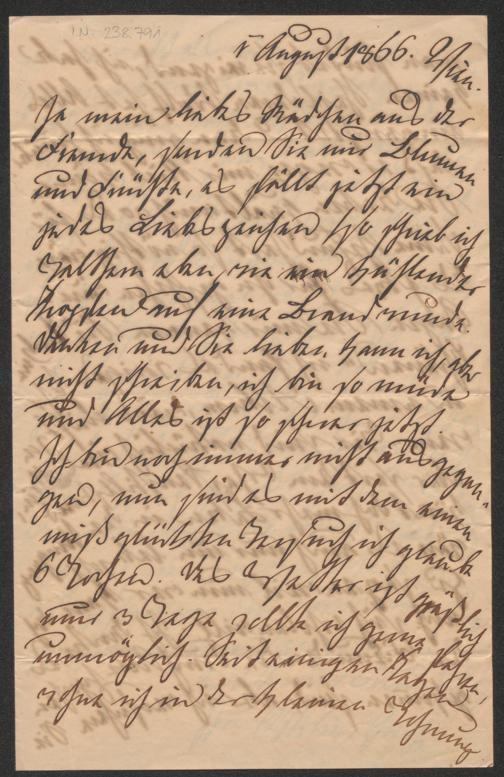 I.N. 238.791
1 August 1866. Wien.
Ja mein liebes Mädchen aus der
Fremde, senden Sie nur Blumen
und Früchte, es fällt jetzt ein
jedes Liebeszeichen so schrieb ich
eben, wie ein kühlender
Tropfen auf eine Brandwunde.
Denken und Sie lieben kann ich, aber
nicht schreiben, ich bin so müde
und Alles ist so schwer jetzt.
Ich bin noch immer nicht ausgegan-
gen, nun sind es mit dem einen
mißglückten Versuch ich glaube
6 Wochen. Das Wetter ist gräßlich
nur 3 Tage sollte ich
unmöglich. Seit einigen Tagen
wohne ich in der kleinen Wohnung